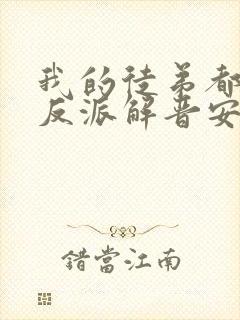 我的徒弟都
反派解晋安
錯當江南